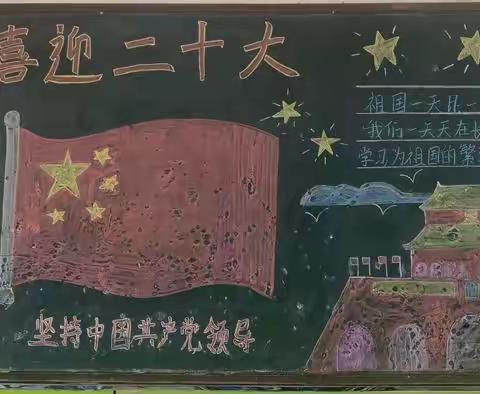 喜迎二十大
祖国一天比一
我们一天天在长
学习为祖国的繁
坚持中国共产党领导